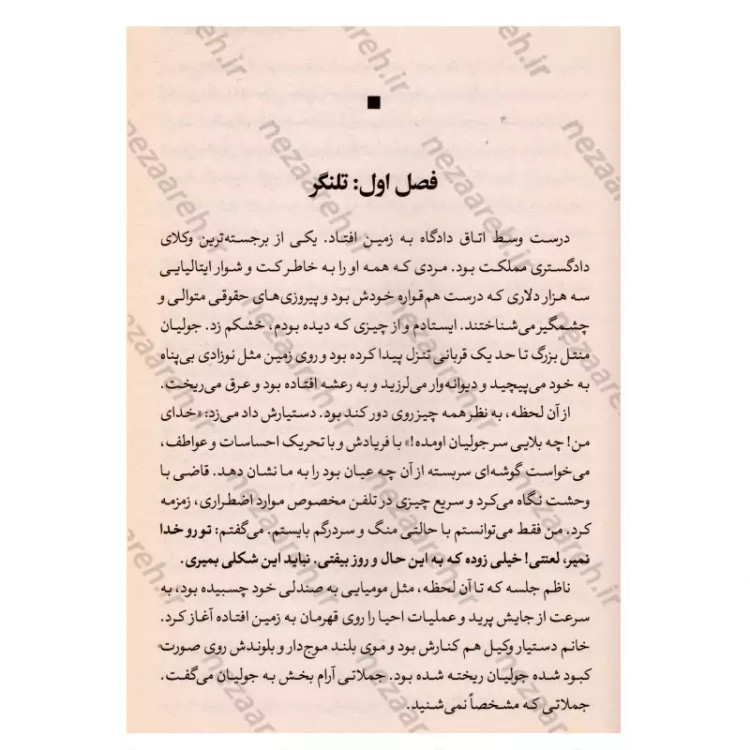 فصل اول: تلنگر
درست وسط اتاق دادگاه به زمین افتاد. یکی از برجسته‌ترین وکلای
دادگستری مملکت بود. مردی که همه او را به خاطر کت و شوار ایتالیایی
سه هزار دلاری که درست هم‌قواره خودش بود و پیروزی‌های حقوقی متوالی و
چشمگیر می‌شناختند. ایستادم و از چیزی که دیده بودم، خشکم زد. جولیان
منتل بزرگ تا حد یک قربانی تنزل پیدا کرده بود و روی زمین مثل نوزادی بی‌پناه
به خود می‌پیچید و دیوانه‌وار می‌لرزید و به رعشه افتاده بود و عرق می‌ریخت.
از آن لحظه، به نظر همه چیز روی دور کند بود. دستیارش داد می‌زد: «خدای
من! چه بلایی سر جولیان اومده!» با فریادش و با تحریک احساسات و عواطف،
می‌خواست گوشه‌ای سربسته از آن چه عیان بود را به ما نشان دهد. قاضی با
وحشت نگاه می‌کرد و سریع چیزی در تلفن مخصوص موارد اضطراری، زمزمه
کرد. من فقط می‌توانستم با حالتی منگ و سردرگم بایستم. می‌گفتم: تو رو خدا
نمیر، لعنتی! خیلی زوده که به این حال و روز بیفتی. نباید این شکلی بمیری.
ناظم جلسه که تا آن لحظه، مثل مومیایی به صندلی خود چسبیده بود، به
سرعت از جایش پرید و عملیات احیا را روی قهرمان به زمین افتاده آغاز کرد.
خانم دستیار وکیل هم کنارش بود و موی بلند موج‌دار و بلوندش روی صورت
کبود شده جولیان ریخته شده بود. جملاتی آرام بخش به جولیان می‌گفت.
جملاتی که مشخصاً نمی‌شنید.
nezaareh.ir